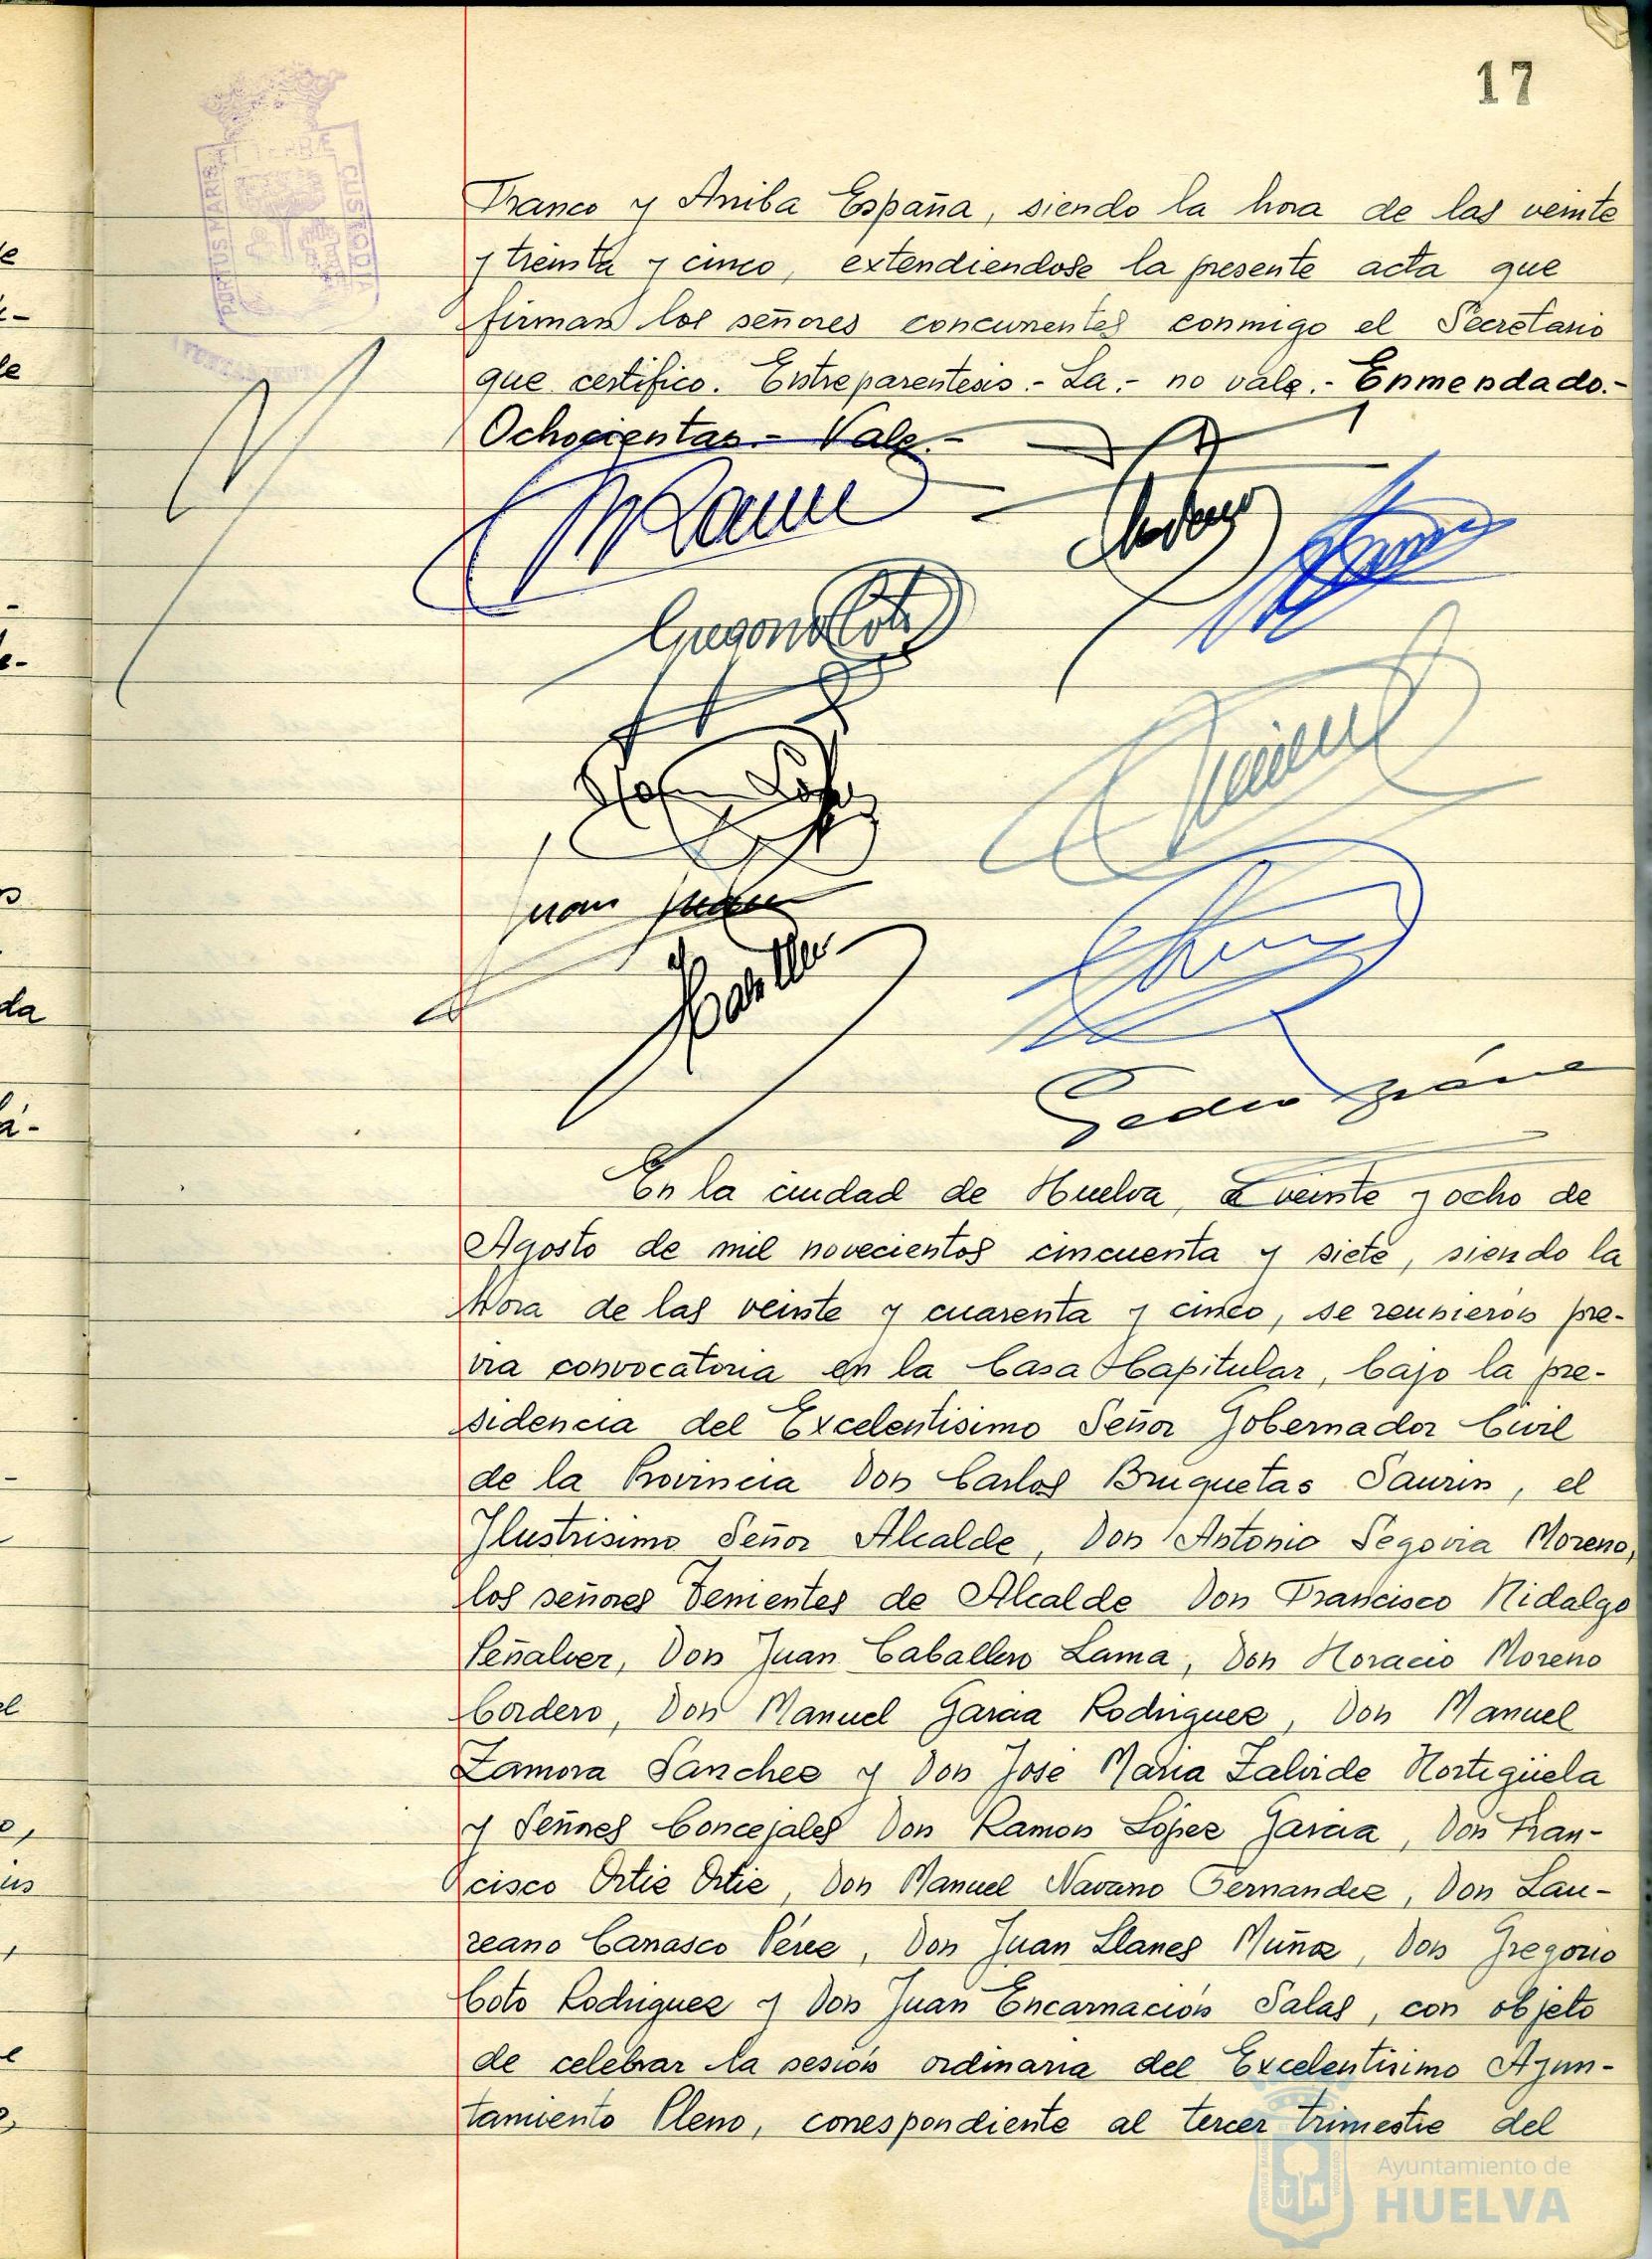 17
PORTUS MARIS ET TERRAE CUSTODIA
Franco y Arriba España, siendo la hora de las veinte
y treinta y cinco, extendiendose la presente acta que
firman los señores concurrentes conmigo el Secretario
que certifico. Entreparentesis.- La.- no vale.- Enmendado.-
Ochocientas.- Vale.-
Gregorio Coto
Juan
Pedro
En la ciudad de Huelva, a veinte y ocho de
Agosto de mil novecientos cincuenta y siete, siendo la
hora de las veinte y cuarenta y cinco, se reunieron pre-
via convocatoria en la Casa Capitular, bajo la pre-
sidencia del Excelentisimo Señor Gobernador Civil
de la Provincia Don Carlos Bruquetas Saurin, el
Ilustrisimo Señor Alcalde, Don Antonio Segovia Moreno,
los señores Tenientes de Alcalde Don Francisco Hidalgo
Peñalver, Don Juan Caballero Lama, Don Horacio Moreno
Cordero, Don Manuel Garcia Rodriguez, Don Manuel
Zamora Sanchez y Don Jose Maria Zalvide Hortigüela
y Señores Concejales Don Ramon López Garcia, Don Fran-
cisco Ortiz Ortiz, Don Manuel Navarro Fernandez, Don Lau-
reano Carrasco Pérez, Don Juan Llanes Muñoz, Don Gregorio
Coto Rodriguez y Don Juan Encarnación Salas, con objeto
de celebrar la sesión ordinaria del Excelentisimo Ayun-
tamiento Pleno, correspondiente al tercer trimestre del
Ayuntamiento de
HUELVA